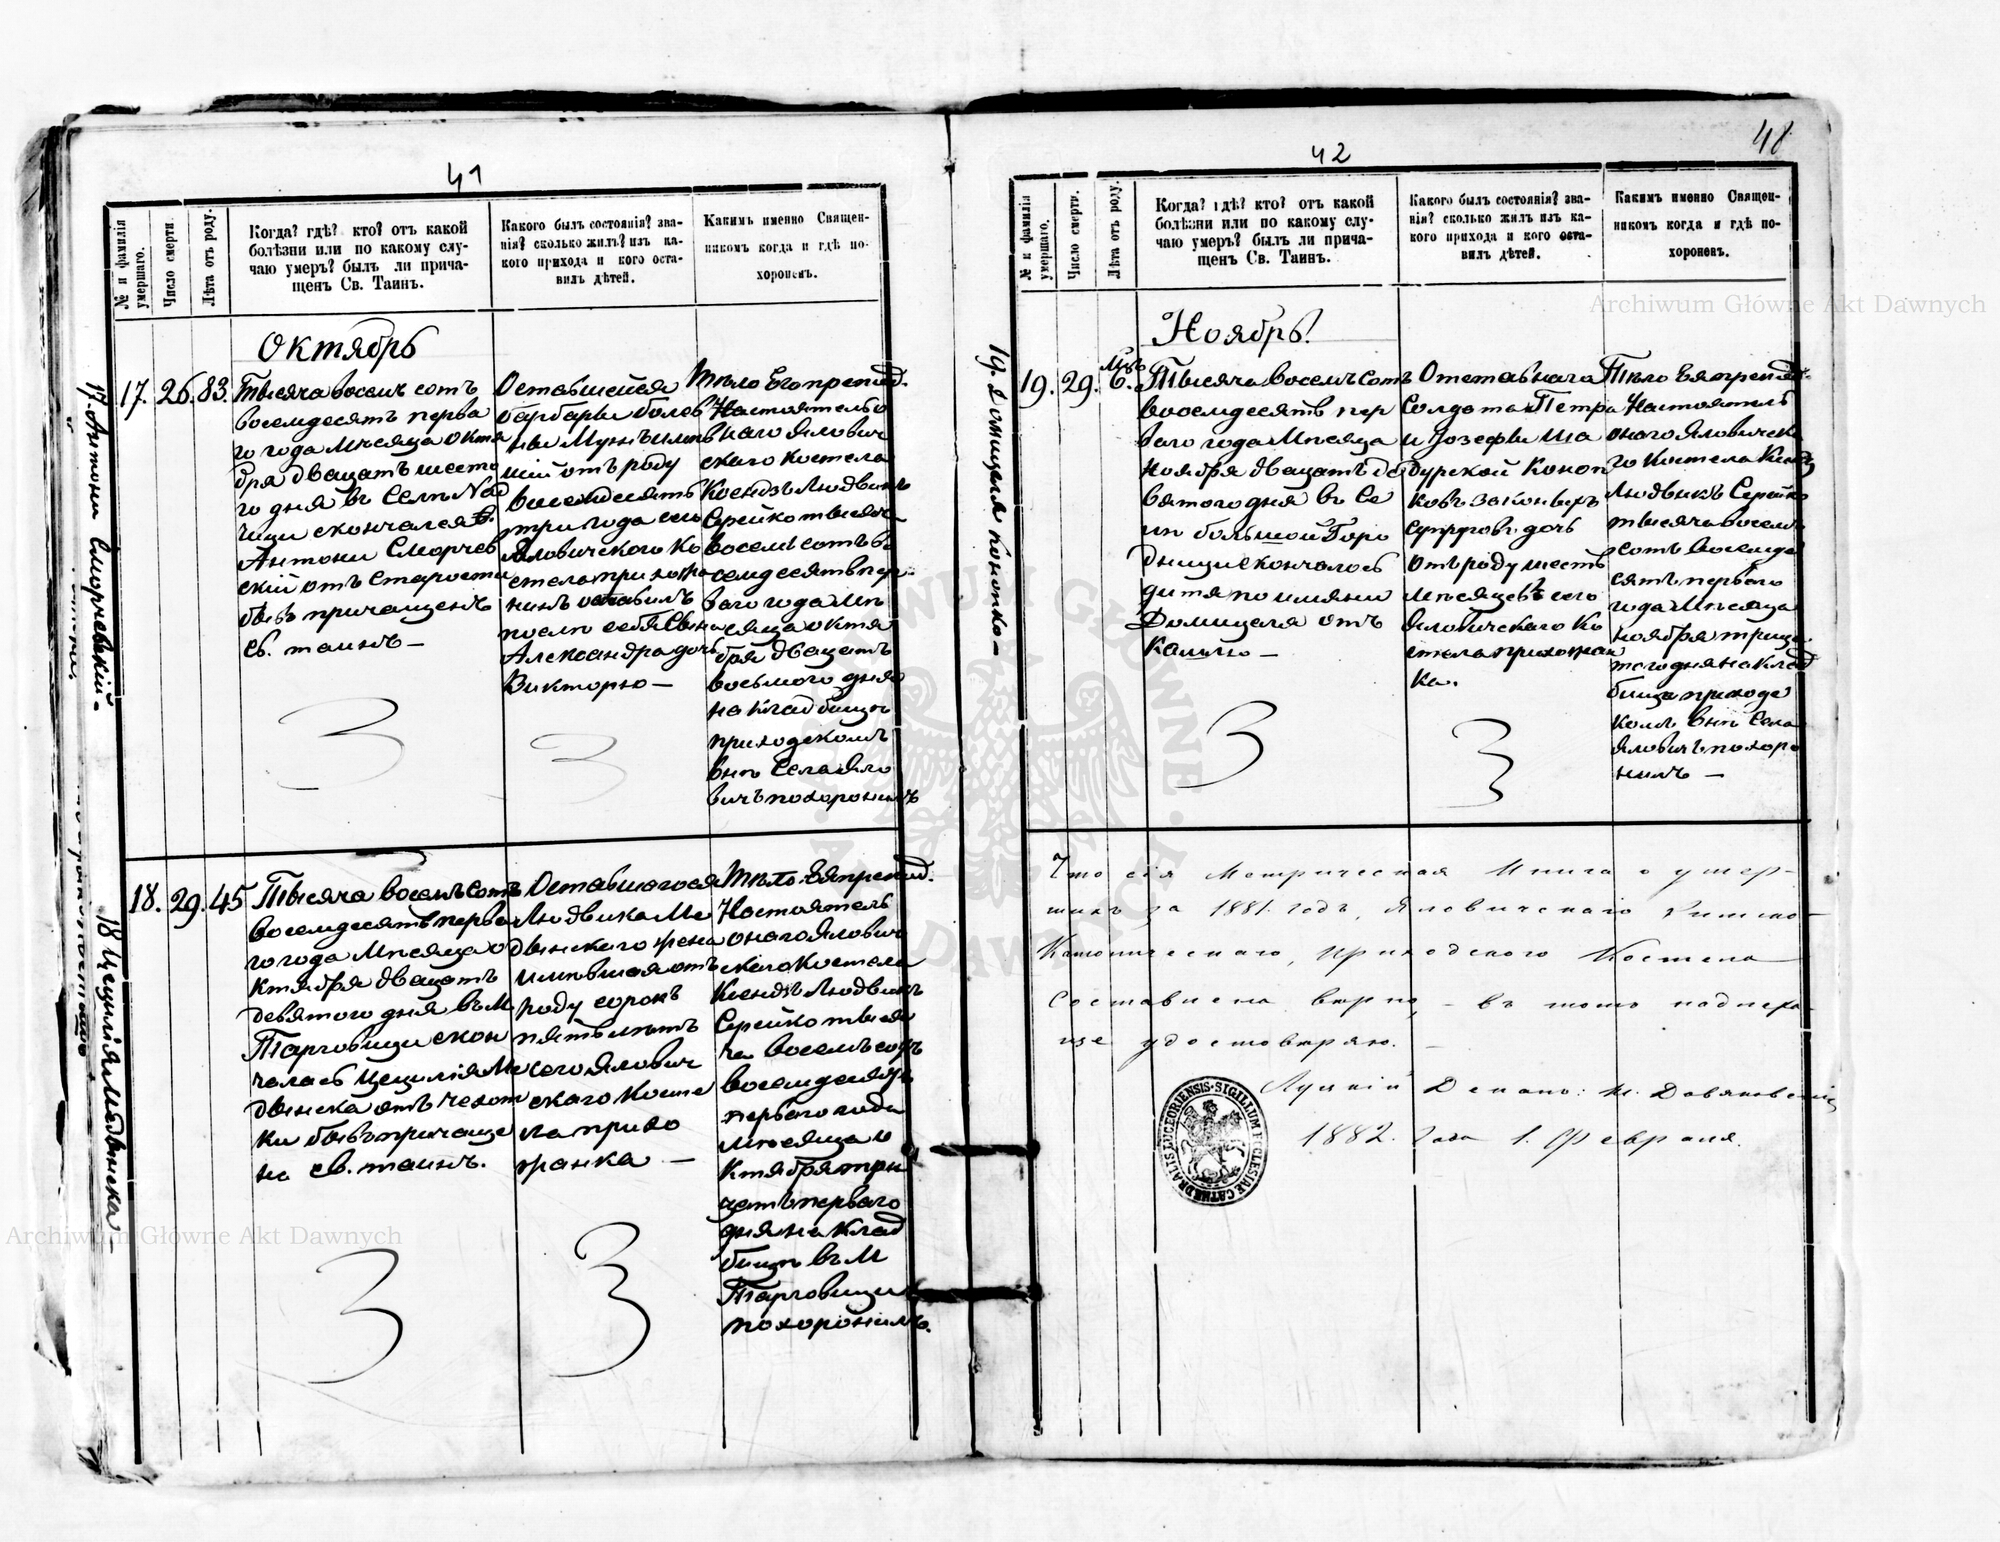 41
№ и фамилія умершаго.
Число смерти
Лѣта отъ роду.
Когда? гдѣ? кто? отъ какой
болѣзни или по какому слу-
чаю умеръ? былъ ли прича-
щенъ Св. Таинъ.
Какого былъ состоянія? зва-
нія? сколько жилъ? изъ ка-
кого прихода и кого оста-
вилъ дѣтей.
Какимъ именно Священ-
никомъ когда и гдѣ по-
хороненъ.
Октябрь
17. Антони Сморчевскій -
17. 26. 83.
Тысяча восемъ сотъ
восемдесятъ перва
го года Мѣсяца октя
бря двацатъ шесто
го дня въ Селѣ
скончался
Антони Сморчев
скій отъ старости
бывъ причащенъ
Св. таинъ —
Оставшейся
барбары
Мужъ имѣв
шій отъ роду
восемдесятъ
три года сего
Яловичского Ко
стела прихожа
нинъ оставилъ
послѣ себя Сына
Александра дочь
Викторю —
Тѣло Его препод.
Настоятель о
наго Ялович
скаго костела
Ксендзъ Людвикъ
Серейко тысяча
восемъ сотъ во
семдесятъ пер
ваго года Мѣ
сяца октя
бря двацатъ
восьмого дня
на кладбищѣ
приходскомъ
внѣ Села Яло
вичъ похоронилъ
18 Цецилія Мядынска -
18. 29. 45
Тысяча восемъ сотъ
восемдесятъ перва
го года Мѣсяца о
ктября двацатъ
девятого дня въ М
Торговици скон
чалась Цецилія Мя
дынска отъ чехот
ки бывъ причаще
на св. таинъ.
Оставшогося
Людвика Мя
дынскаго жена
имѣвшая отъ
роду сорокъ
пять лѣтъ
сего Ялович
скаго Косте
ла прихо
жанка —
Тѣло Ея препод.
Настоятель
онаго Ялович
скаго Костела
Ксендзъ Людвикъ
Серейко тыся
ча восемъ сотъ
восемдесятъ
перваго года
Мѣсяца о
ктября три
цатъ перваго
дня на клад
бищѣ въ М
Торговици
похоронилъ.
42
48
№ и фамилія умершаго.
Число смерти.
Лѣта отъ роду.
Когда? гдѣ? кто? отъ какой
болѣзни или по какому слу-
чаю умеръ? былъ ли прича-
щенъ Св. Таинъ.
Какого былъ состоянія? зва-
нія? сколько жилъ изъ ка-
кого прихода и кого оста-
вилъ дѣтей.
Какимъ именно Священ-
никомъ когда и гдѣ по-
хороненъ.
Ноябрь!
19. Домицеля Конопко —
19. 29. 6.
Тысяча восемъ сотъ
восемдесятъ пер
ваго года Мѣсяца
Ноября двацатъ де
вятого дня въ Се
лѣ большой Горо
дници скончалось
дитя по имяни
Домицеля отъ
Кашлю —
Отставнаго
Солдата Петра
и Юзефы Ша
дурской Коноп
ковъ законныхъ
супруговъ дочь
отъ роду шесть
мѣсяцевъ сего
Яловичского Ко
стела прихожан
ка.
Тѣло Ея препод.
Настоятель
онаго Яловичска
го костела Ксендзъ
Людвикъ Серейко
тысяча восемъ
сотъ восемде
сятъ перваго
года Мѣсяца
ноября трица
того дня на клад
бищѣ приходс
комъ внѣ Села
Яловичъ похоро
нилъ —
Что сія Метрическая Книга о умер-
шихъ за 1881. годъ, Яловичскаго Римско-
Католическаго, приходского Костела
Составлена вѣрно, - въ томъ надлежа-
ще удостовѣряю. -
Луцкій Деканъ:
1882. года 1. Февраля.
SIGILLUM ECCLESIAE CATHEDRALIS LUCEORIENSIS
Archiwum Główne Akt Dawnych
Archiwum Główne Akt Dawnych
ARCHIWUM GŁÓWNE AKT DAWNYCH